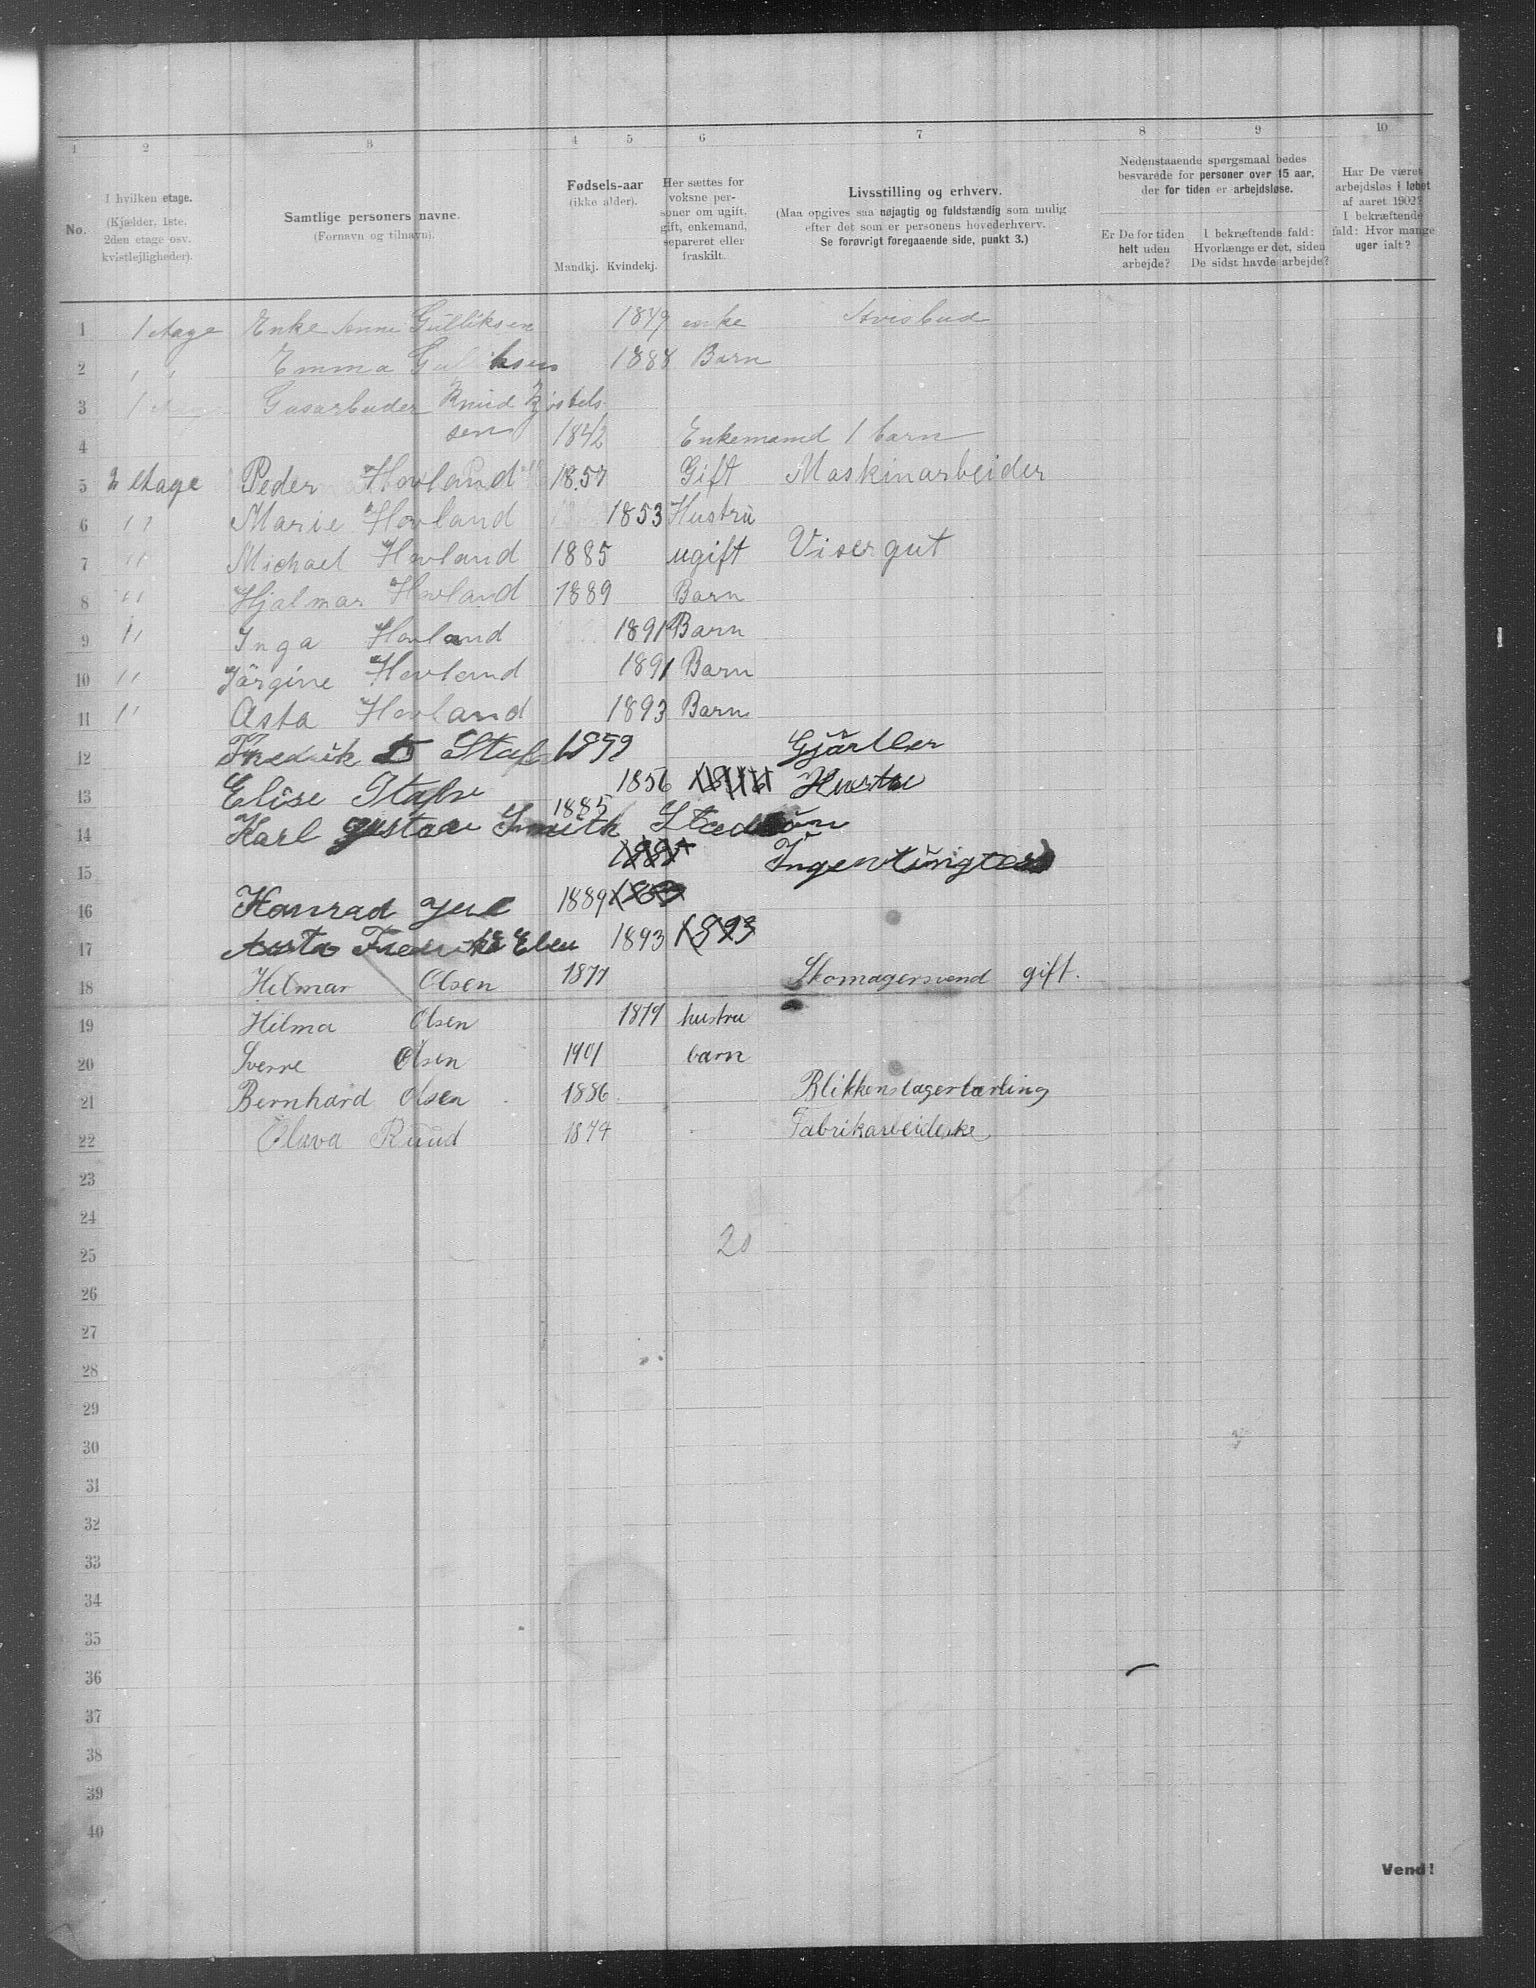 1 2 3 4 5 6 7 8 9 10
No.
I hvilken etage. (Kjælder, 1ste, 2den etage osv. kvistlejligheder).
Samtlige personers navne. (Fornavn og tilnavn).
Fødsels-aar (ikke alder). Mandkj. Kvindekj.
Her sættes for voksne personer om ugift, gift, enkemand, separeret eller fraskilt.
Livsstilling og erhverv. (Maa opgives saa nøjagtig og fuldstændig som mulig efter det som er personens hovederhverv. Se forøvrigt foregaaende side, punkt 3.)
Nedenstaaende spørgsmaal bedes besvarede for personer over 15 aar, der for tiden er arbejdsløse.
Er De for tiden helt uden arbejde?
I bekræftende fald: Hvorlænge er det, siden De sidst havde arbejde?
Har De været arbejdsløs i løbet af aaret 1902? I bekræftende fald: Hvor mange uger ialt?
1 1 Etage Enke Anne Gulliksen 1849 enke Avisbud
2 " " Emma Gulliksen 1888 Barn
3 1 Etage Gasarbeider Knud
4 sen 1842 Enkemand 1 barn
5 2 Etage Peder Hovland 1857 Gift Maskinarbeider
6 " " Marie Hovland 1853 Hustru
7 " " Michael Hovland 1885 ugift Visergut
8 " " Hjalmar Hovland 1889 Barn
9 " " Inga Hovland 1891 Barn
10 " " Jörgine Hovland 1891 Barn
11 " " Asta Hovland 1893 Barn
12 Fredrik Gjörtler
13 Elise 1856 Hustru
14 Karl Gustav Smith 1885
15
16 Konrad 1889
17 1893 1893
18 Hilmar Olsen 1877 Skomagersvend gift.
19 Hilma Olsen 1879 hustru
20 Sverre Olsen 1901 barn
21 Bernhard Olsen 1886 Blikkenslagerlærling
22 Olava Ruud 1874 Fabrikarbeiderske
23
24
25 20
26
27
28
29
30
31
32
33
34
35
36
37
38
39
40
Vend!